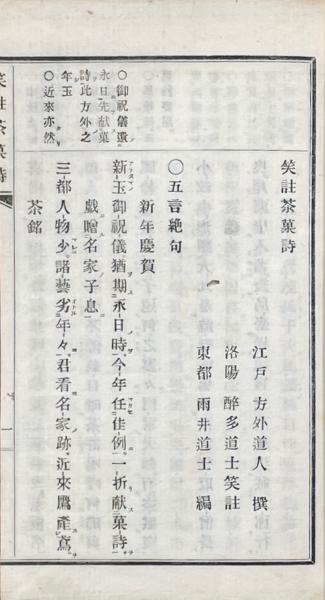 笑註茶菓詩
江戸 方外道人 撰
洛陽 醉多道士笑註
東都 雨井道士 編
〇五言絶句
新年慶賀
新玉御祝儀猶期永日時今年任佳例一折献菓詩
戯贈名家子息
三都人物少諸藝劣年々君看名家跡近來鷹產鳶
茶銘
〇御祝儀重
永日先献菓
詩此方外之
年玉
〇近來亦然
笑註茶菓詩
一